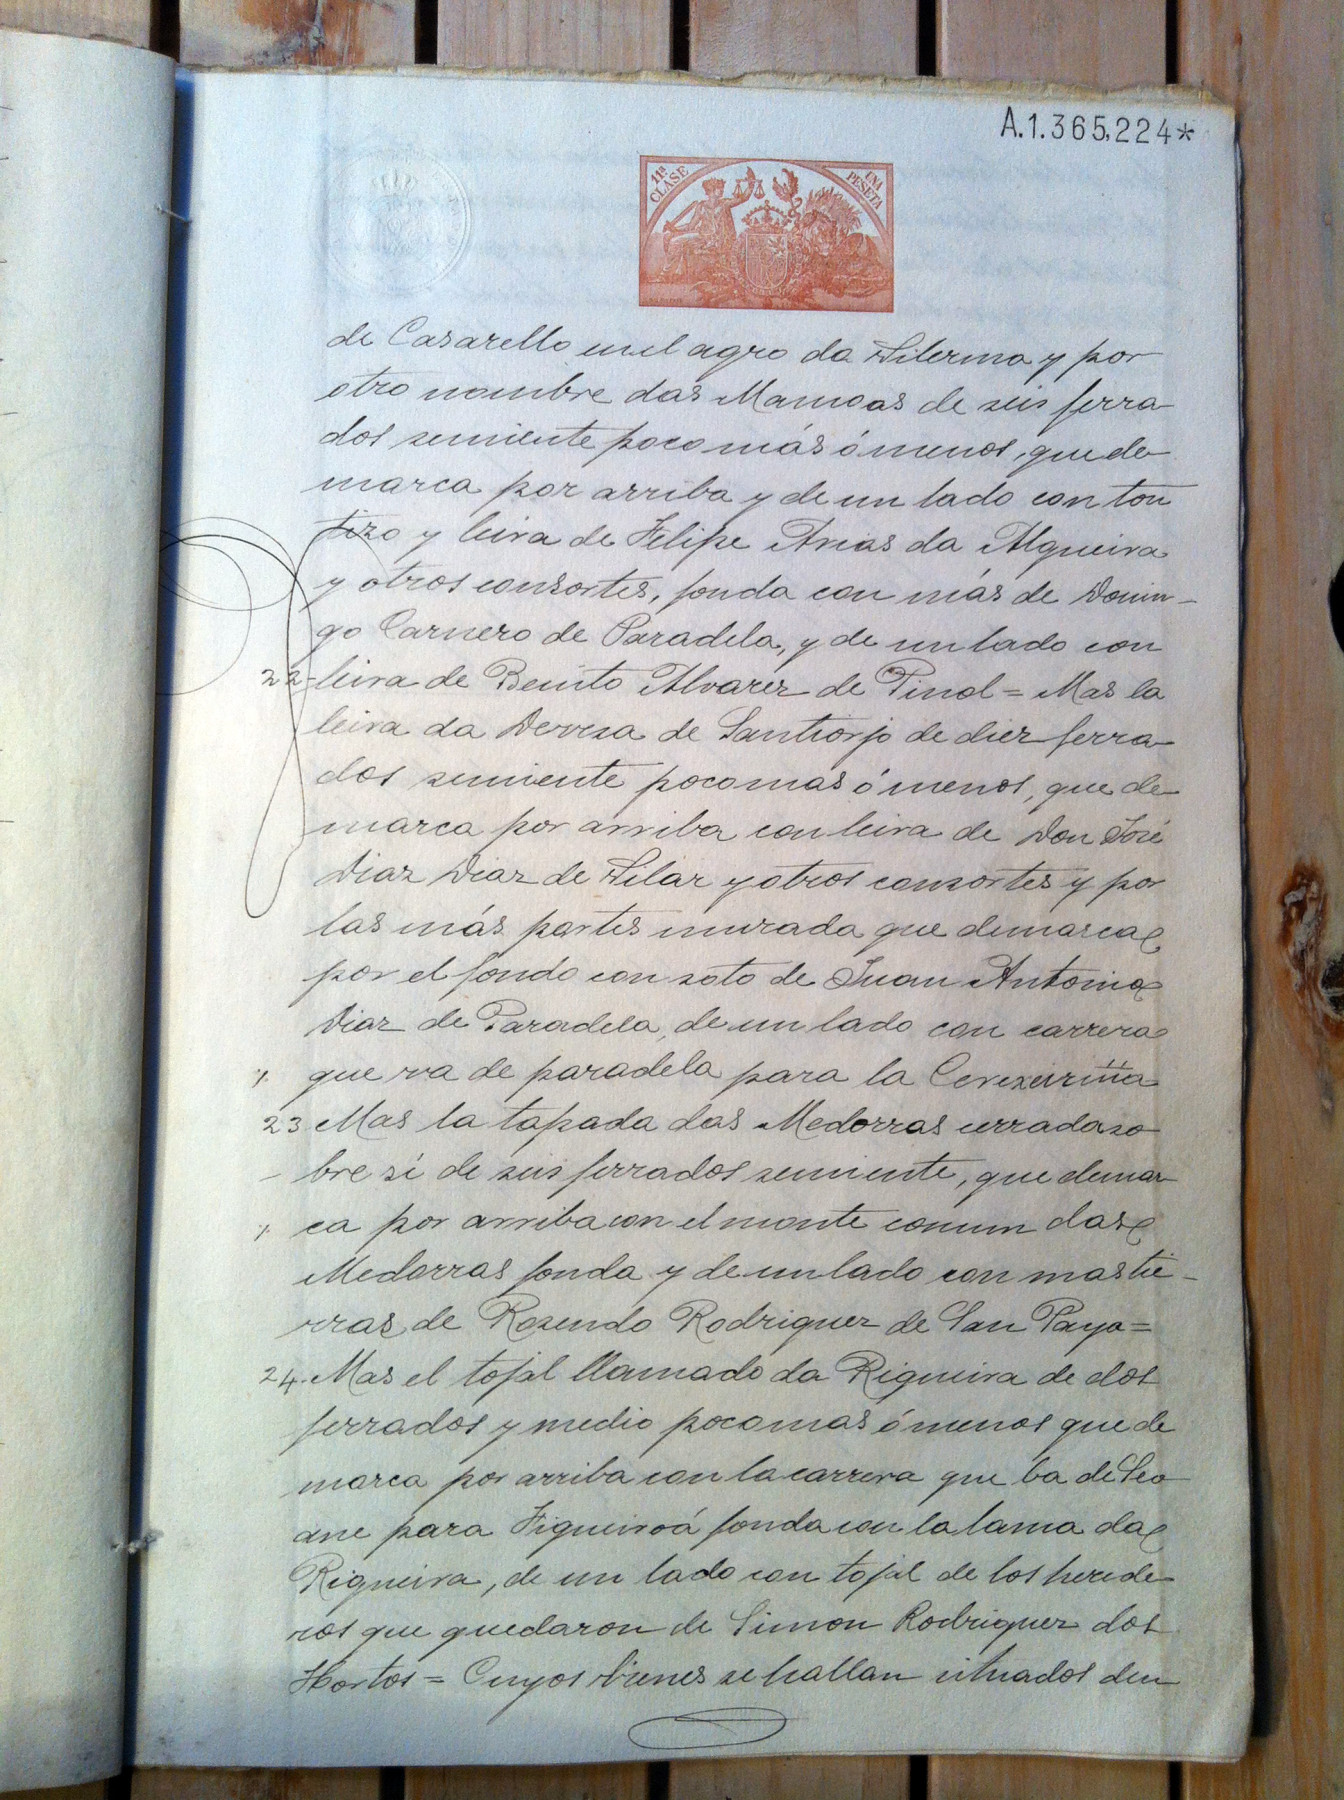 A.1.365,224*
11ª CLASE
UNA PESETA
de Casarello en el agro da Silerma y por
otro nombre das Mamoas de seis ferra
dos semiente poco más ó menos, que de
marca por arriba y de un lado con tou
tizo y leira de Felipe Arias da Algueira
y otros consortes, fonda con más de Domin-
go Carnero de Paradela, y de un lado con
22- leira de Benito Alvarez de Pinol = Mas la
leira da Deveza de Santiorjo de diez ferra
dos semiente poco mas ó menos, que de
marca por arriba con leira de Don José
Diaz Diaz de Silar y otros consortes y por
las más partes murada que demarca
por el fondo con soto de Juan Antonio
Diaz de Paradela, de un lado con carrera
que va de paradela para la Cerexeiriña
23 Mas la tapada das Medorras cerrada so
- bre sí de seis ferrados semiente, que demar
ca por arriba con el monte comun das
Medorras fonda y de un lado con mas tie-
rras de Rosendo Rodriguez de San Payo =
24. Mas el tojal llamado da Rigueira de dos
ferrados y medio poco mas ó menos que de
marca por arriba con la carrera que ba de Seo
ane para Figueiroá fonda con la lama da
Rigueira, de un lado con tojal de los herede
ros que quedaron de Simon Rodriguez dos
Hortos = Cuyos vienes se hallan situados den